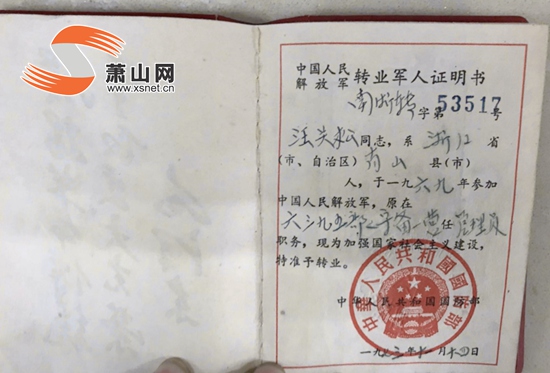 萧山网
www.xsnet.cn
中国人民
解放军 转业军人证明书
字第 53517 号
同志，系 浙江 省
（市、自治区）肖山 县（市）
人，于一九六九年参加
中国人民解放军，原在
六三九五部 一营 任 管理员
职务，现为加强国家社会主义建设，
特准予转业。
中华人民共和国国防部
中华人民共和国国防部
一九 年 月十四日